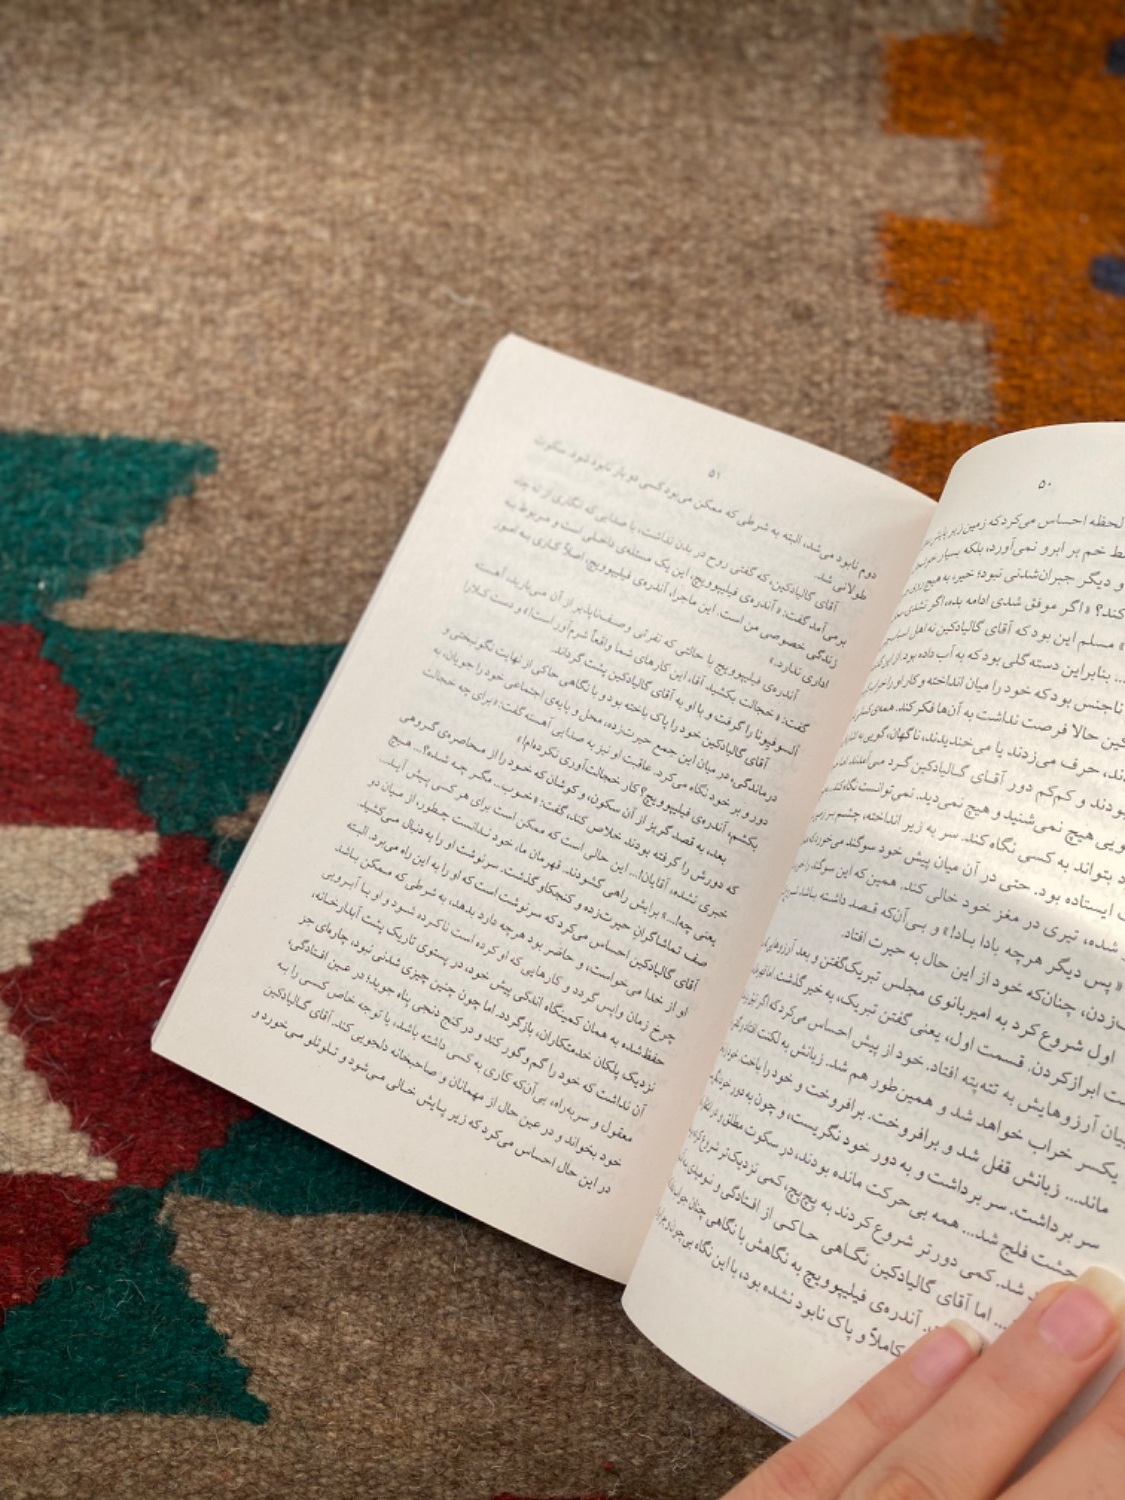 ۵۰
لحظه احساس می‌کرد که زمین زیر پایش
خم بر ابرو نمی‌آورد، بلکه بسیار
و دیگر جبران‌شدنی نبود؛ خیر، به هیچ روی
کند؟ «اگر موفق شدی ادامه بده، اگر نشدی
مسلم این بود که آقای گالیادکین نه اهل
بنابراین دسته گلی بود که به آب داده بود. از این
ناجنس بود که خود را میان انداخته و کار او را
حالا فرصت نداشت به آن‌ها فکر کند. همه‌ی
حرف می‌زدند یا می‌خندیدند، ناگهان، گویی به
بودند و کم‌کم دور آقای گالیادکین گرد می‌آمدند. اما
هیچ نمی‌شنید و هیچ نمی‌دید. نمی‌توانست نگاه کند
بتواند به کسی نگاه کند. سر به زیر انداخته، چشم بر
ایستاده بود. حتی در آن میان پیش خود سوگند می‌خورد که
شده، تیری در مغز خود خالی کند. همین که این سوگند را
«پس دیگر هرچه بادا باد!» و بی‌آن‌که قصد داشته باشد
زدن، چنان‌که خود از این حال به حیرت افتاد.
اول شروع کرد به امیربانوی مجلس تبریک‌گفتن و بعد آرزوهای
ابرازکردن. قسمت اول، یعنی گفتن تبریک، به خیر گذشت. اما
بیان آرزوهایش به تته‌پته افتاد. خود از پیش احساس می‌کرد که اگر
یکسر خراب خواهد شد و همین‌طور هم شد. زبانش به لکنت افتاد و
ماند... زبانش قفل شد و برافروخت. برافروخت و خود را باخت. خود را
سر برداشت. سر برداشت و به دور خود نگریست، و چون به دور خود
فلج شد... همه بی‌حرکت مانده بودند، در سکوت مطلق و در
شد. کمی دورتر شروع کردند به پچ‌پچ، کمی نزدیک‌تر شروع کردند
اما آقای گالیادکین نگاهی حاکی از افتادگی و نومیدی
آندره‌ی فیلیپوویچ به نگاهش با نگاهی چنان
کاملاً و پاک نابود نشده بود، با این نگاه بی‌چون و چرا
۵۱
دوم نابود می‌شد، البته به شرطی که ممکن می‌بود کسی دو بار نابود شود. سکوت
طولانی شد.
آقای گالیادکین، که گفتی روح در بدن نداشت، با صدایی که انگاری از ته چاه
برمی‌آمد گفت: «آندره‌ی فیلیپوویچ، این یک مسئله‌ی داخلی است و مربوط به
زندگی خصوصی من است. این ماجرا، آندره‌ی فیلیپوویچ، اصلاً کاری به امور
اداری ندارد.»
آندره‌ی فیلیپوویچ با حالتی که نفرتی وصف‌ناپذیر از آن می‌بارید، آهسته
گفت: «خجالت بکشید آقا، این کارهای شما واقعاً شرم‌آور است!» و دست کلارا
آلسوفیونا را گرفت و با او به آقای گالیادکین پشت گرداند.
آقای گالیادکین خود را پاک باخته بود و با نگاهی حاکی از نهایت نگونبختی و
درماندگی، در میان این جمع حیرت‌زده، محل و پایه‌ی اجتماعی خود را جویان، به
دور و بر خود نگاه می‌کرد. عاقبت او نیز به صدایی آهسته گفت: «برای چه خجالت
بکشم، آندره‌ی فیلیپوویچ؟ کار خجالت‌آوری نکرده‌ام!»
بعد، به قصد گریز از آن سکون، و کوشان که خود را از محاصره‌ی گروهی
که دورش را گرفته بودند خلاص کند، گفت: «خوب... مگر چه شده؟... هیچ
خبری نشده، آقایان!... این حالی است که ممکن است برای هر کسی پیش آید...
یعنی چه!...» برایش راهی گشودند. قهرمان ما، خود ندانست چطور، از میان دو
صف تماشاگران حیرت‌زده و کنجکاو گذشت. سرنوشت او را به دنبال می‌کشید.
آقای گالیادکین احساس می‌کرد که سرنوشت است که او را به این راه می‌برد. البته
او از خدا می‌خواست، و حاضر بود هرچه دارد بدهد، به شرطی که ممکن باشد
چرخ زمان واپس گردد و کارهایی که او کرده است ناکرده شود و او با آبرویی
حفظ‌شده به همان کمینگاه اندکی پیش خود، در پستوی تاریک پشت آبدارخانه،
نزدیک پلکان خدمتکاران، بازگردد. اما چون چنین چیزی شدنی نبود، چاره‌ای جز
آن نداشت که خود را گم و گور کند و در کنج دنجی پناه جوید؛ در عین افتادگی،
معقول و سربه‌راه، بی‌آن‌که کاری به کسی داشته باشد، یا توجه خاص کسی را به
خود بخواند و در عین حال از مهمانان و صاحبخانه دلجویی کند. آقای گالیادکین
در این حال احساس می‌کرد که زیر پایش خالی می‌شود و تلوتلو می‌خورد و